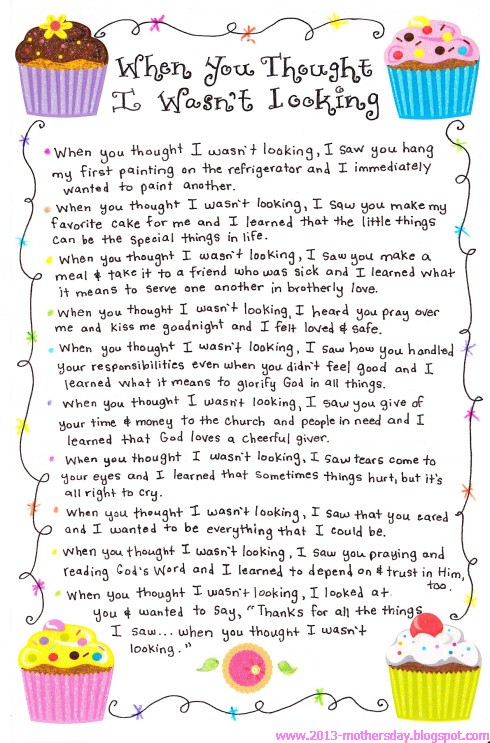 When You Thought
I Wasn't Looking
When you thought I wasn't looking, I saw you hang
my first painting on the refrigerator and I immediately
wanted to paint another.
When you thought I wasn't looking, I saw you make my
favorite cake for me and I learned that the little things
can be the special things in life.
When you thought I wasn't looking, I saw you make a
meal & take it to a friend who was sick and I learned what
it means to serve one another in brotherly love.
When you thought I wasn't looking, I heard you pray over
me and kiss me goodnight and I felt loved & safe.
When you thought I wasn't looking, I saw how you handled
your responsibilities even when you didn't feel good and I
learned what it means to glorify God in all things.
When you thought I wasn't looking, I saw you give of
your time & money to the church and people in need and I
learned that God loves a cheerful giver.
When you thought I wasn't looking, I saw tears come to
your eyes and I learned that sometimes things hurt, but it's
all right to cry.
When you thought I wasn't looking, I saw that you cared
and I wanted to be everything that I could be.
When you thought I wasn't looking, I saw you praying and
reading God's Word and I learned to depend on & trust in Him,
too.
When you thought I wasn't looking, I looked at
you & wanted to say, "Thanks for all the things
I saw... when you thought I wasn't
looking."
www.2013-mothersday.blogspot.com